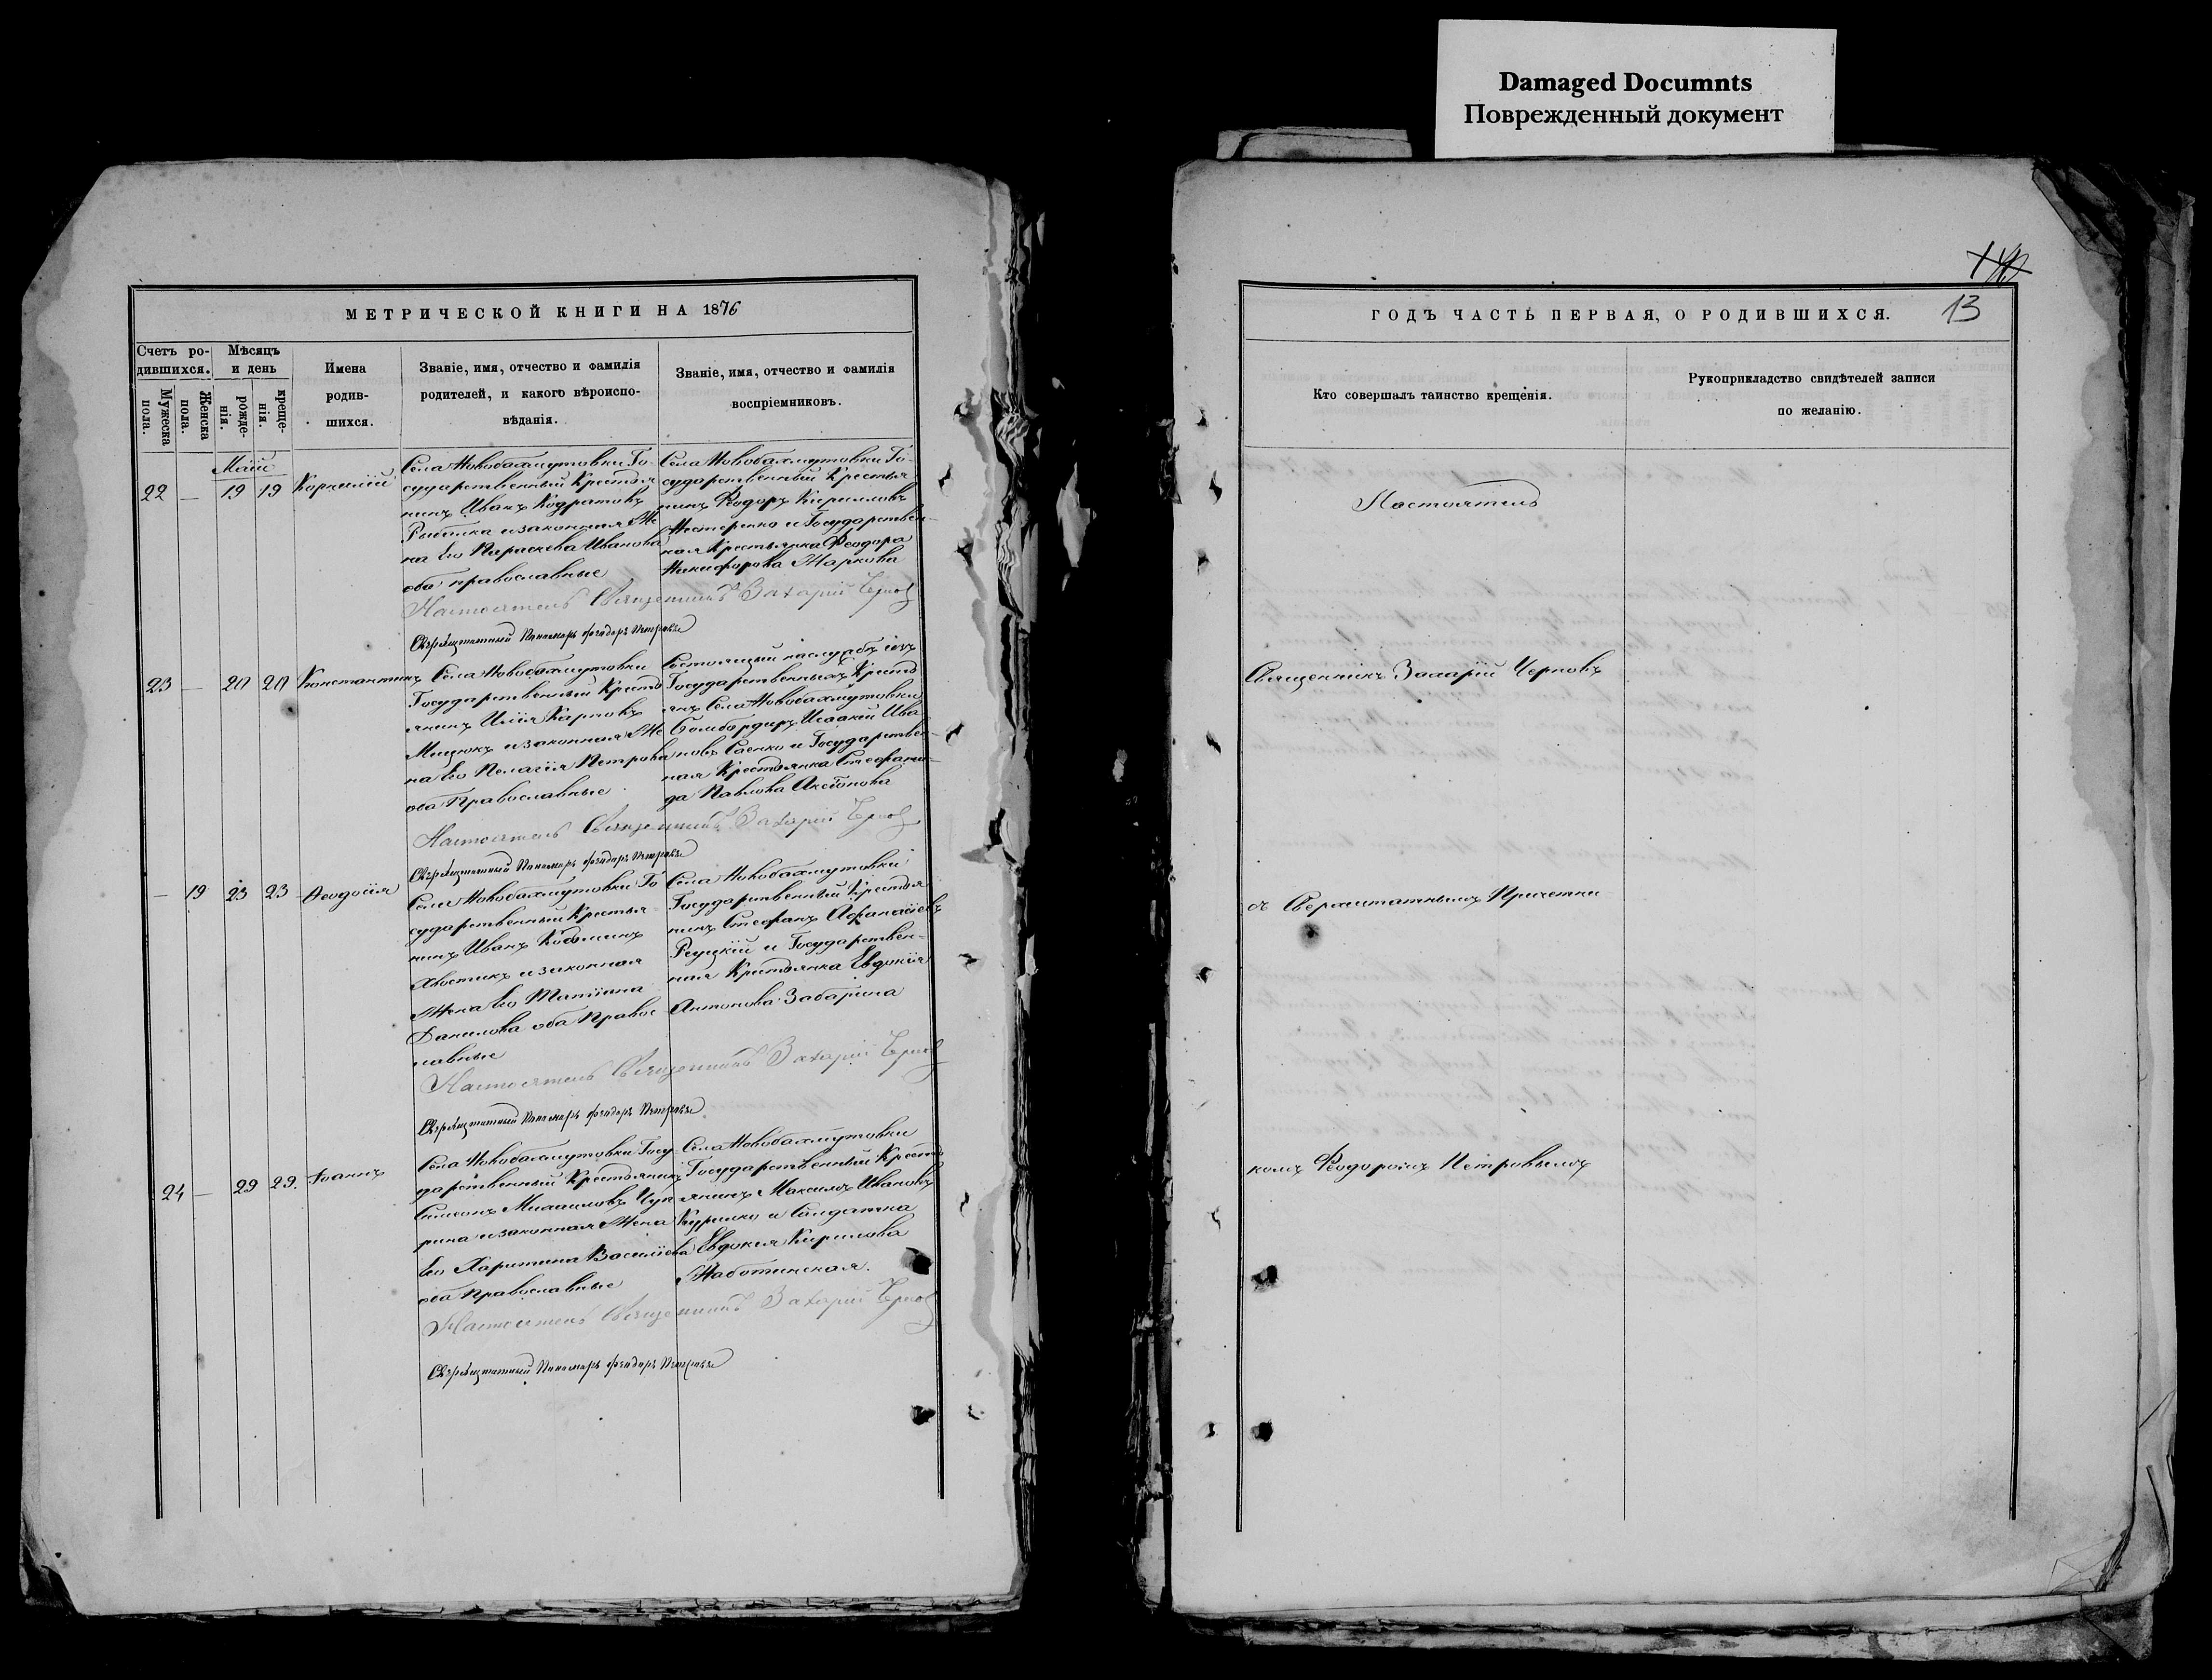 Damaged Documnts
Поврежденный документ
МЕТРИЧЕСКОЙ КНИГИ НА 1876
Счетъ ро-
дившихся.
Мужеска
пола.
Женска
пола.
Мѣсяцъ
и день
рожде-
нія.
креще-
нія.
Имена
родив-
шихся.
Званіе, имя, отчество и фамилія
родителей, и какого вѣроиспо-
вѣданія.
Званіе, имя, отчество и фамилія
воспріемниковъ.
Маій
22 — 19 19 Корнилій
Села Новобахмутовки Го-
сударственный Крестья
нинъ Иванъ Кодратовъ
Рыбалка и законная Же
на Его Параскева Иванова
оба православные
Села Новобахмутовки Го-
сударственный Крестья
нинъ Ѳеодоръ Кириловъ
Нестеренко и Государствен-
ная Крестьянка Ѳеодора
Никифорова Маркова
Настоятель Священникъ Захарій Черновъ
Сверхштатный Пономарь Ѳеодоръ Петровъ
23 — 20 20 Константинъ
Села Новобахмутовки
Государственный Кресть
янинъ Илія Карповъ
Мицюкъ и законная Же
на Его Пелагія Петрова
оба Православные
Состоящий на службѣ изъ
Государственныхъ Кресть
янъ Села Новобахмутовки
Бомбардиръ Исаакій Ива
новъ Саенко и Государствен-
ная Крестьянка Стефани-
да Павлова Аксіонова
Настоятель Священникъ Захарій Черновъ
Сверхштатный Пономарь Ѳеодоръ Петровъ
— 19 23 23 Ѳеодосія
Села Новобахмутовки Го
сударственный Крестья
нинъ Иванъ Козминъ
Хвостикъ и законная
Жена Его Татіана
Данилова оба Правос
лавные
Села Новобахмутовки
Государственный Крестья
нинъ Стефанъ Афанасіевъ
Реуцкій и Государствен-
ная Крестьянка Евдокія
Антонова Забарина
Настоятель Священникъ Захарій Черновъ
Сверхштатный Пономарь Ѳеодоръ Петровъ
24 — 29 29. Іоаннъ
Села Новобахмутовки Госу
дарственный Крестьянинъ
Симеонъ Михаиловъ Чуп
рина и законная Жена
Его Харитина Василіева
оба Православные
Села Новобахмутовки
Государственный Кресть
янинъ Максимъ Ивановъ
Курилко и Солдатка
Евдокия Кирилова
Жаботинская.
Настоятель Священникъ Захарій Черновъ
Сверхштатный Пономарь Ѳеодоръ Петровъ
13
ГОДЪ ЧАСТЬ ПЕРВАЯ, О РОДИВШИХСЯ.
Кто совершалъ таинство крещенія.
Рукоприкладство свидѣтелей записи
по желанію.
Настоятель
Священникъ Захарій Черновъ
съ Сверхштатнымъ Причетни
комъ Ѳеодоромъ Петровымъ